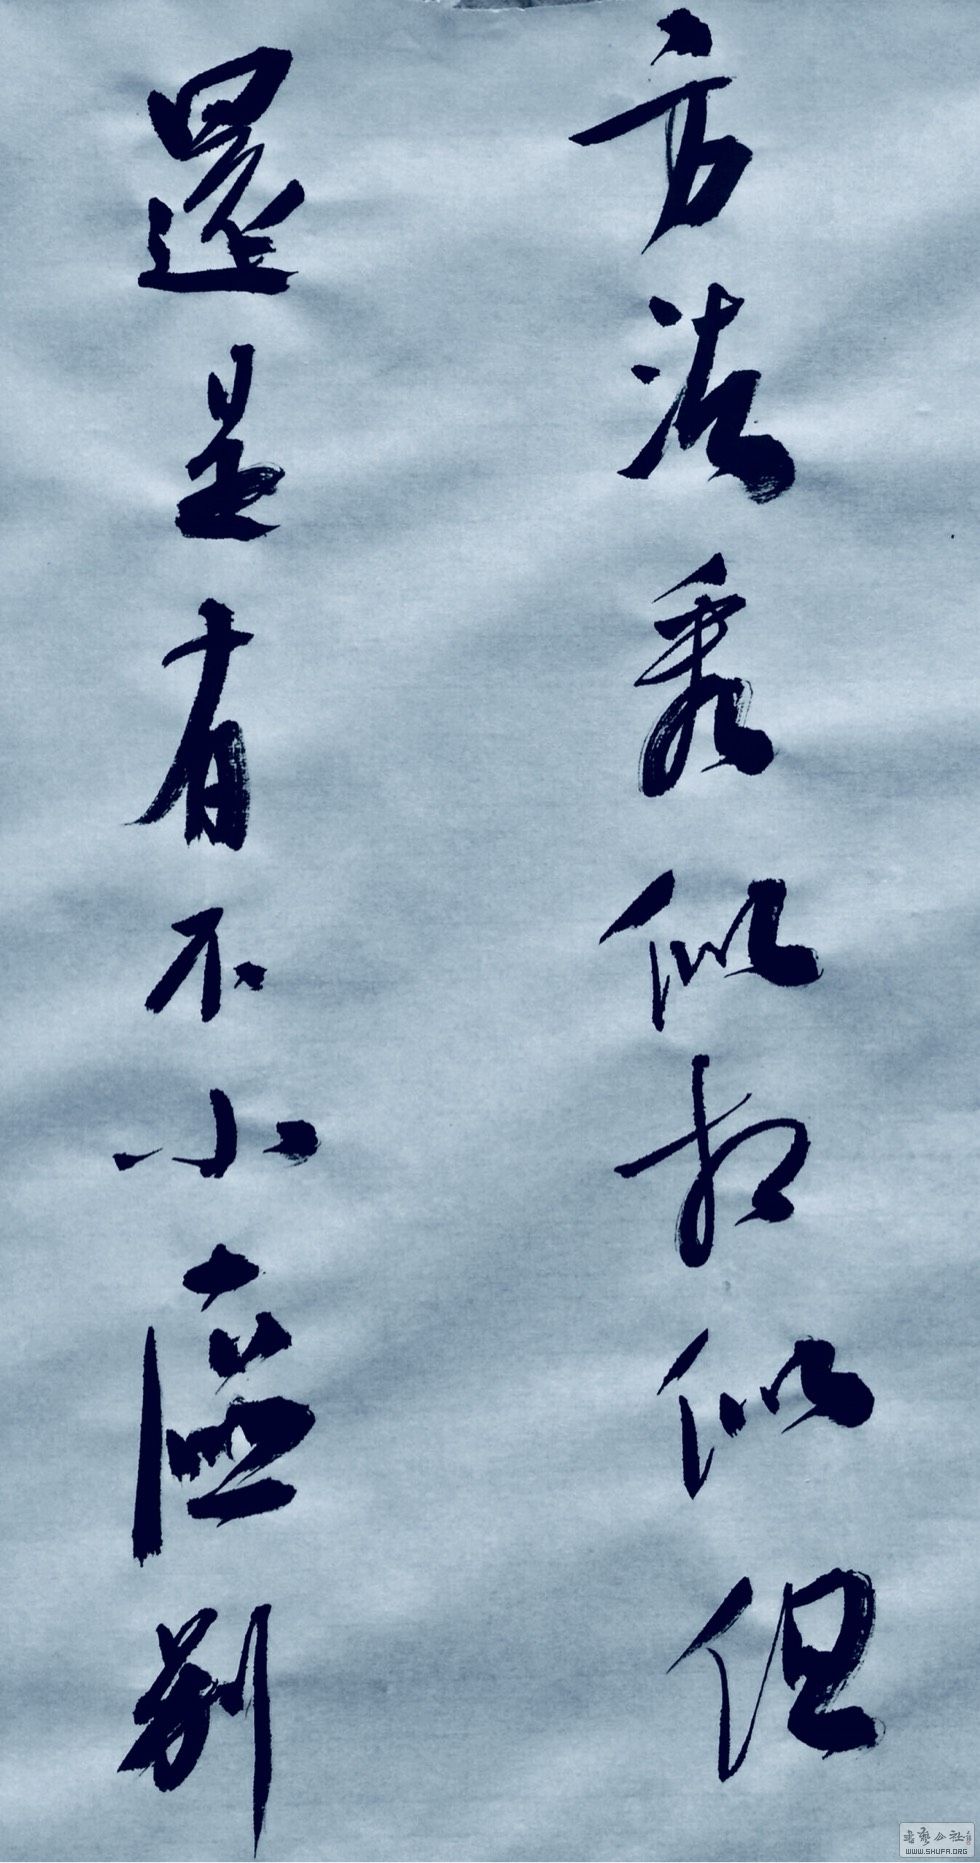 方法看似相似但
還是有不小區别
書藝公社
WWW.SHUFA.ORG